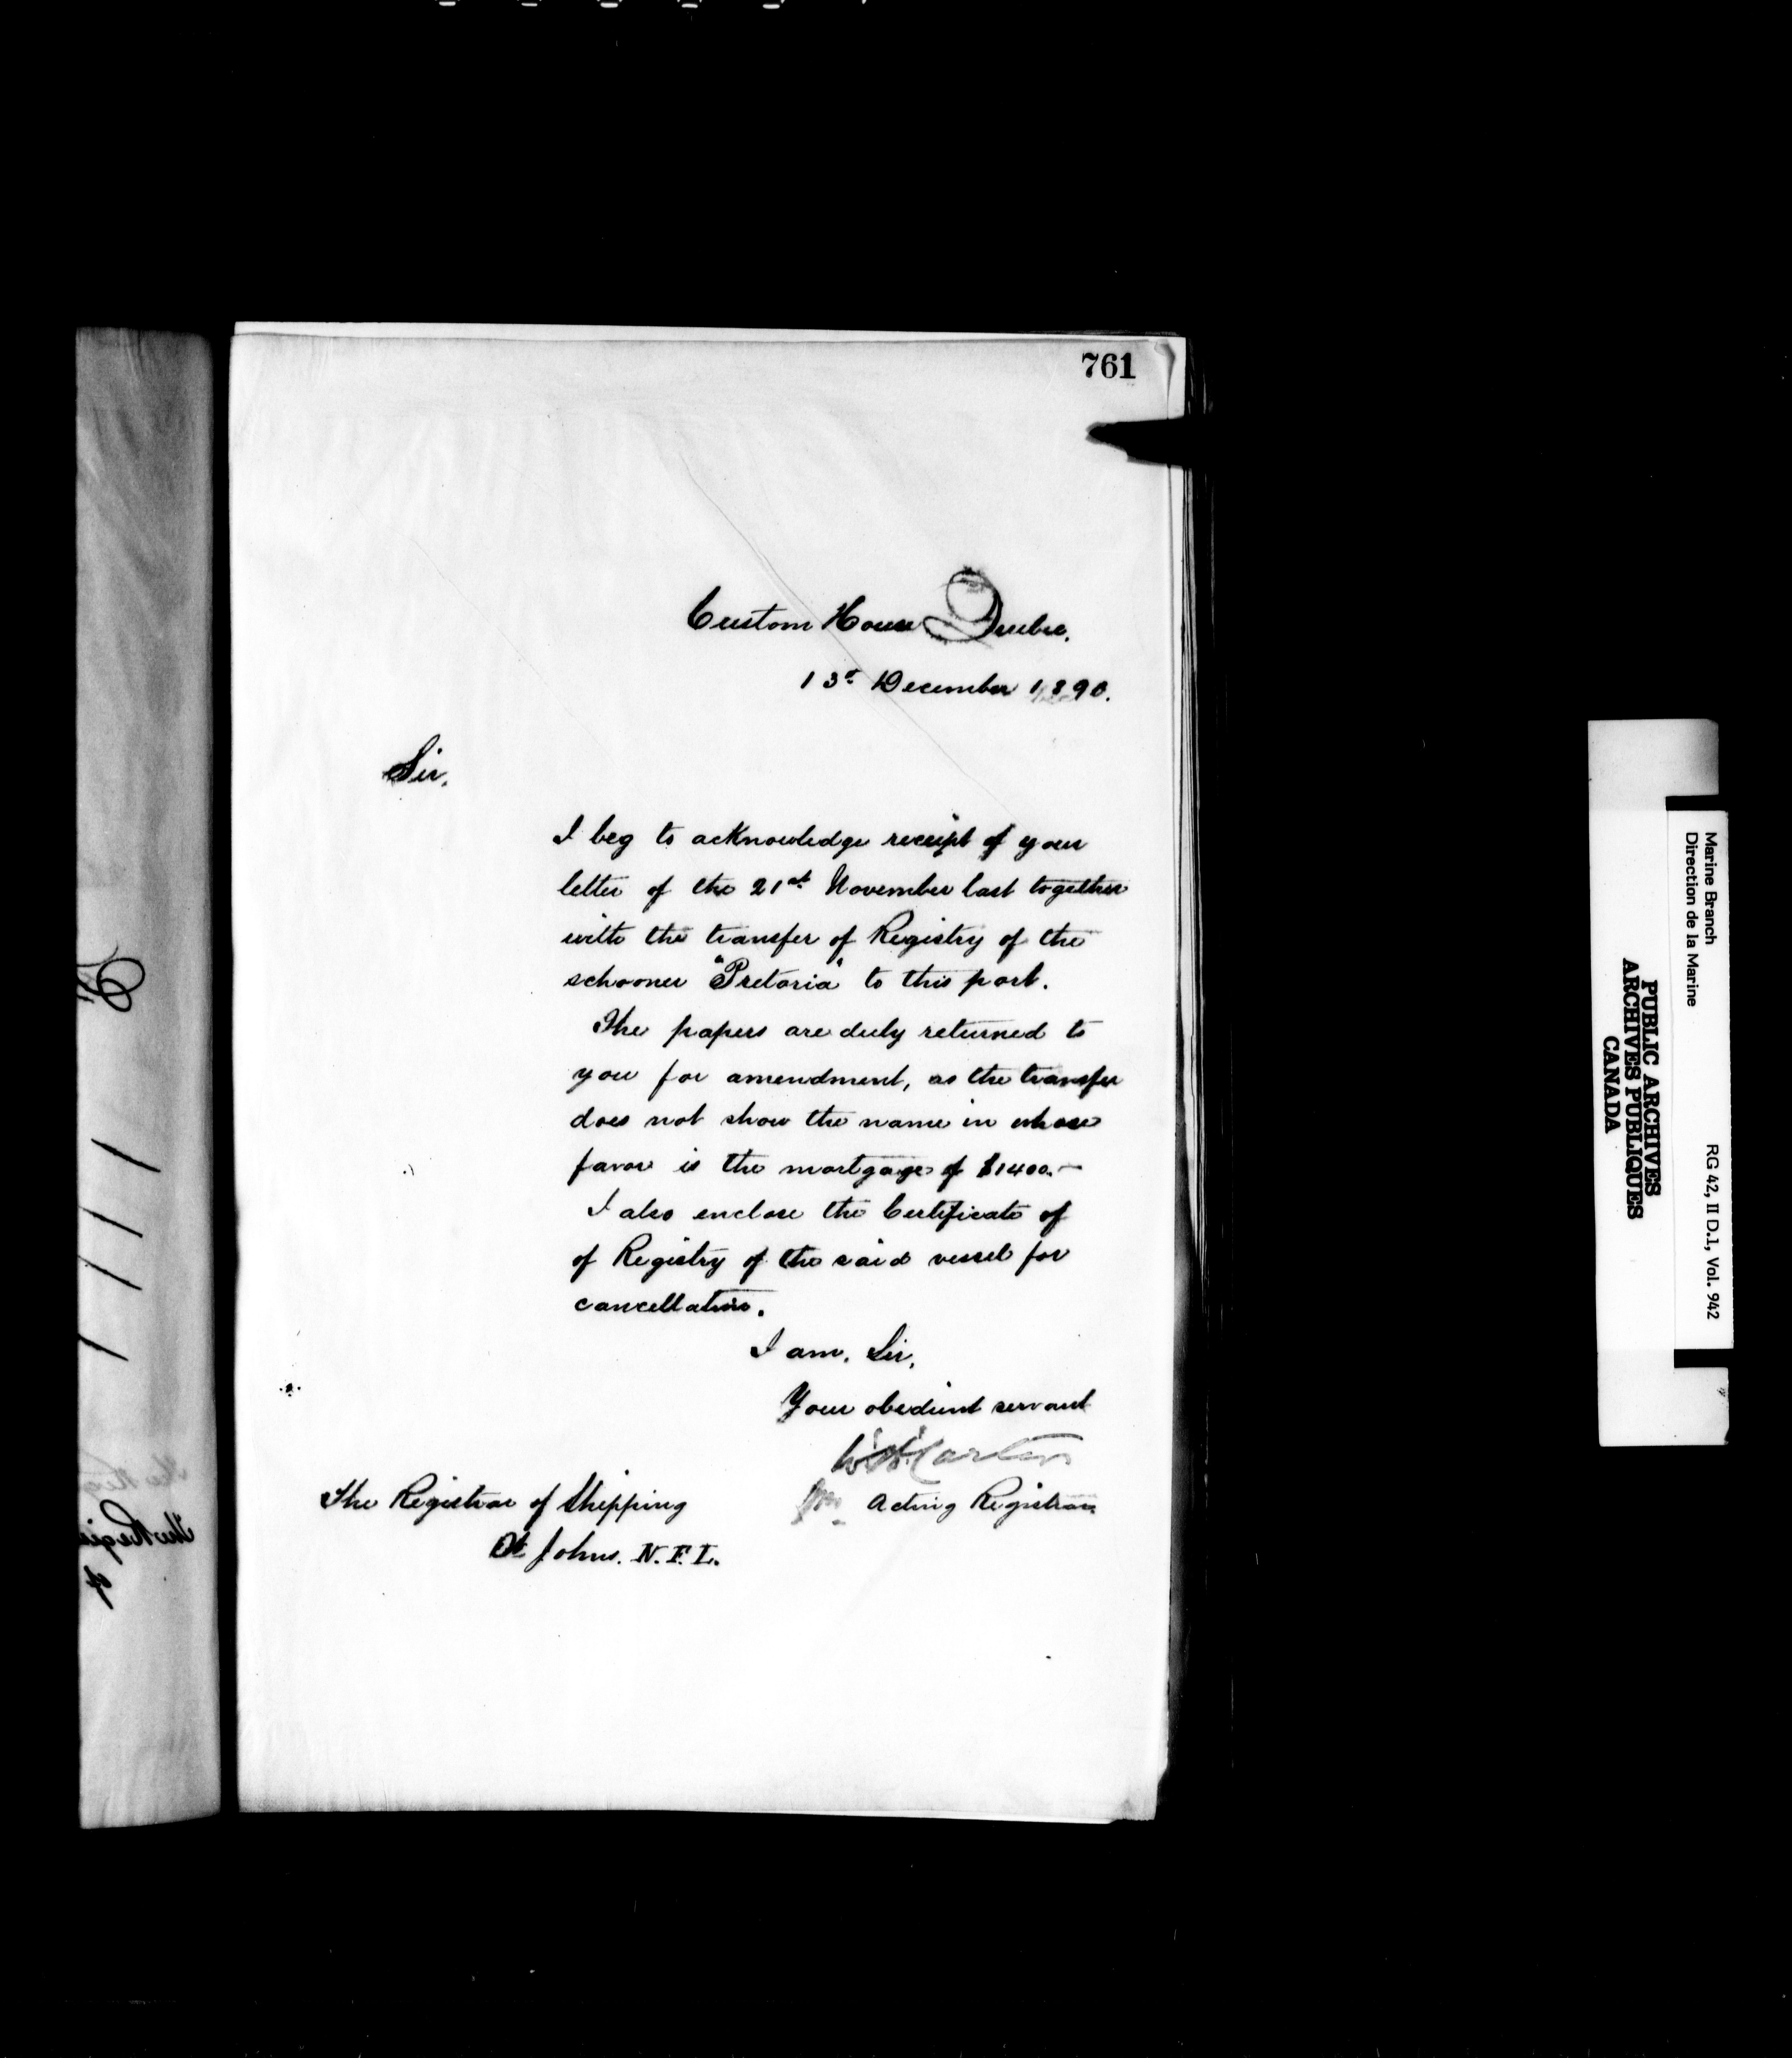 761
Custom House Quebec.
13th December 1890.
Sir,
I beg to acknowledge receipt of your
letter of the 21st November last together
with the transfer of Registry of the
schooner "Pretoria" to this port.
The papers are duly returned to
you for amendment, as the transfer
does not show the name in whose
favor is the mortgage of $1400.—
I also enclose the Certificate of
of Registry of the said vessel for
cancellation.
I am, Sir,
Your obedient servant
Acting Registrar.
The Registrar of Shipping
St Johns. N.F.L.
Marine Branch
Direction de la Marine
RG 42, II D.1, Vol. 942
PUBLIC ARCHIVES
ARCHIVES PUBLIQUES
CANADA